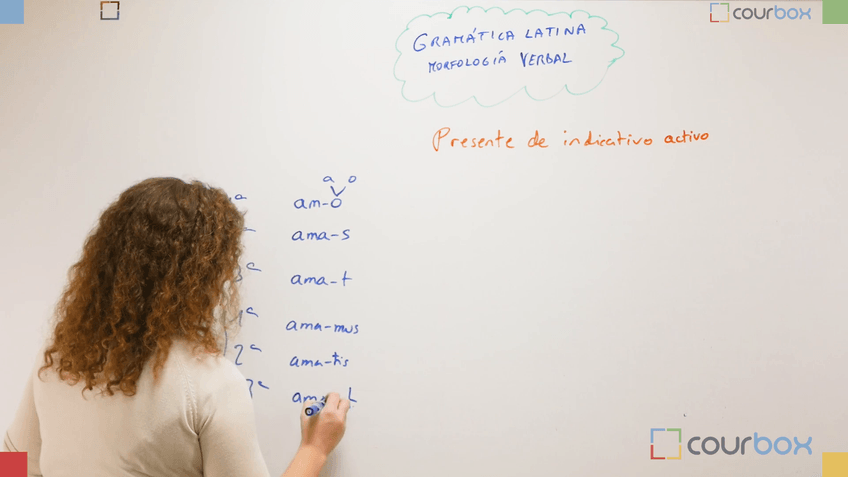 courbox
GRAMÁTICA LATINA
MORFOLOGÍA VERBAL
Presente de indicativo activo
a o
am-o
ama-s
3ª ama-t
1ª ama-mus
2ª ama-tis
3ª
courbox